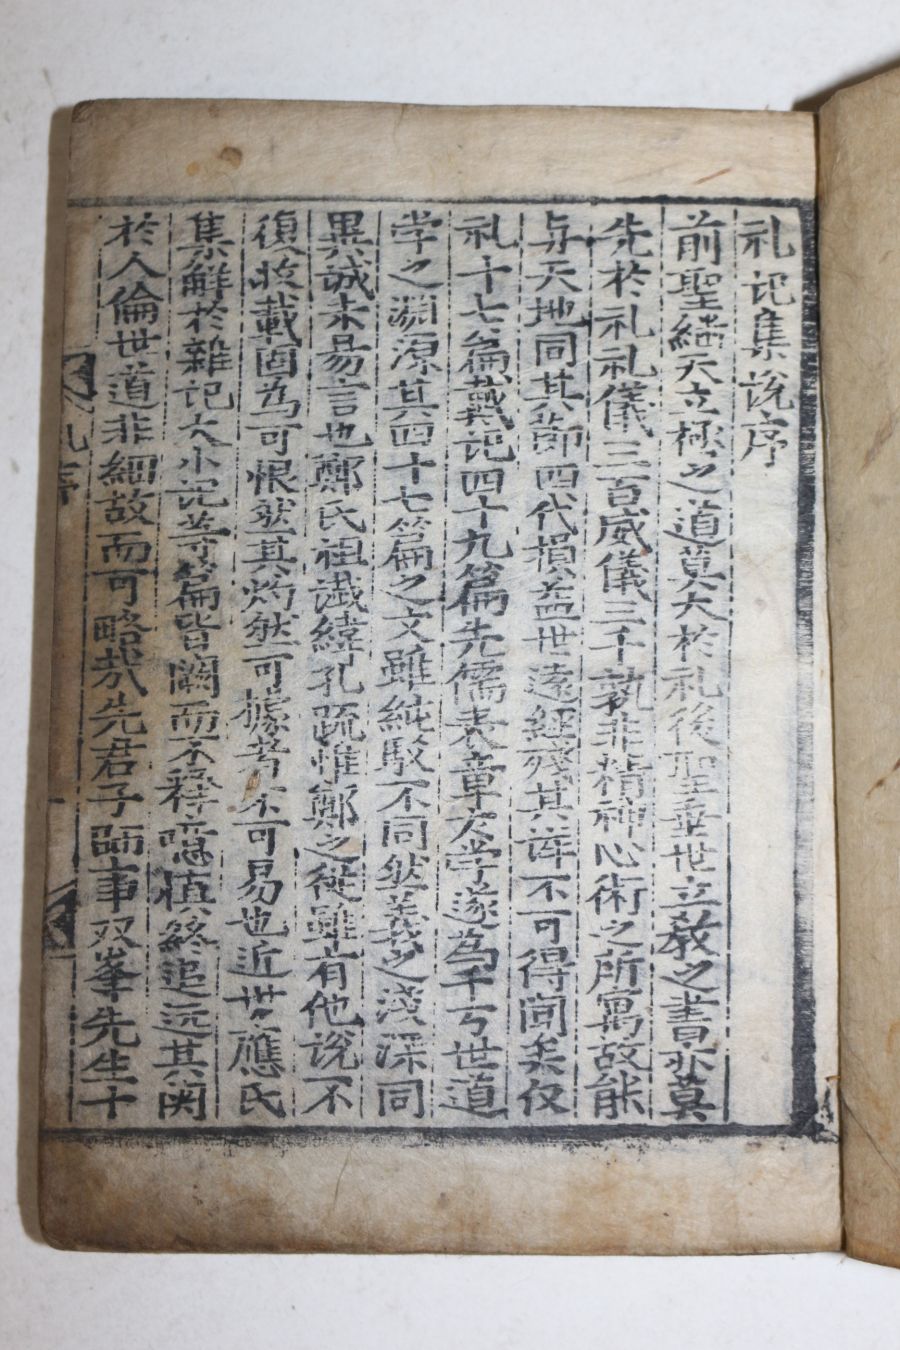 礼记集说序
前聖継天立極之道莫大於礼後聖垂世立教之書亦莫
先於礼礼儀三百威儀三千孰非精神心術之所寓故能
与天地同其節四代損益世遠經残其详不可得闻矣仅
礼十七篇戴记四十九篇先儒表章大学遂為千万世道
学之淵源其四十七篇之文雖純駁不同然義之浅深同
異誠未易言也鄭氏祖讖緯孔疏惟鄭之従雖有他说不
復収載固為可恨然其灼然可據者不可易也近世應氏
集解於雜记大小记等篇皆闕而不释噫慎終追远其関
於人倫世道非細故而可略哉先君子師事双峯先生十
礼序